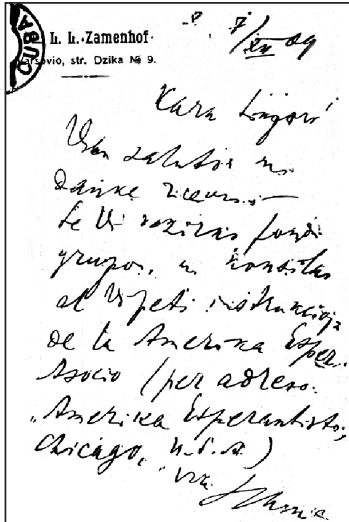 CUBA
L. L. Zamenhof
Varsovio, str. Dzika № 9.
7/XII 09
Kara Sinjoro!
Vian saluton mi
danke ricevis.
Se Vi deziras fondi
grupon, mi konsilas
al Vi peti instrukciojn
de la Amerika Esper.
Asocio (per adreso:
"Amerika Esperantisto",
Chicago, U.S.A.)
Via